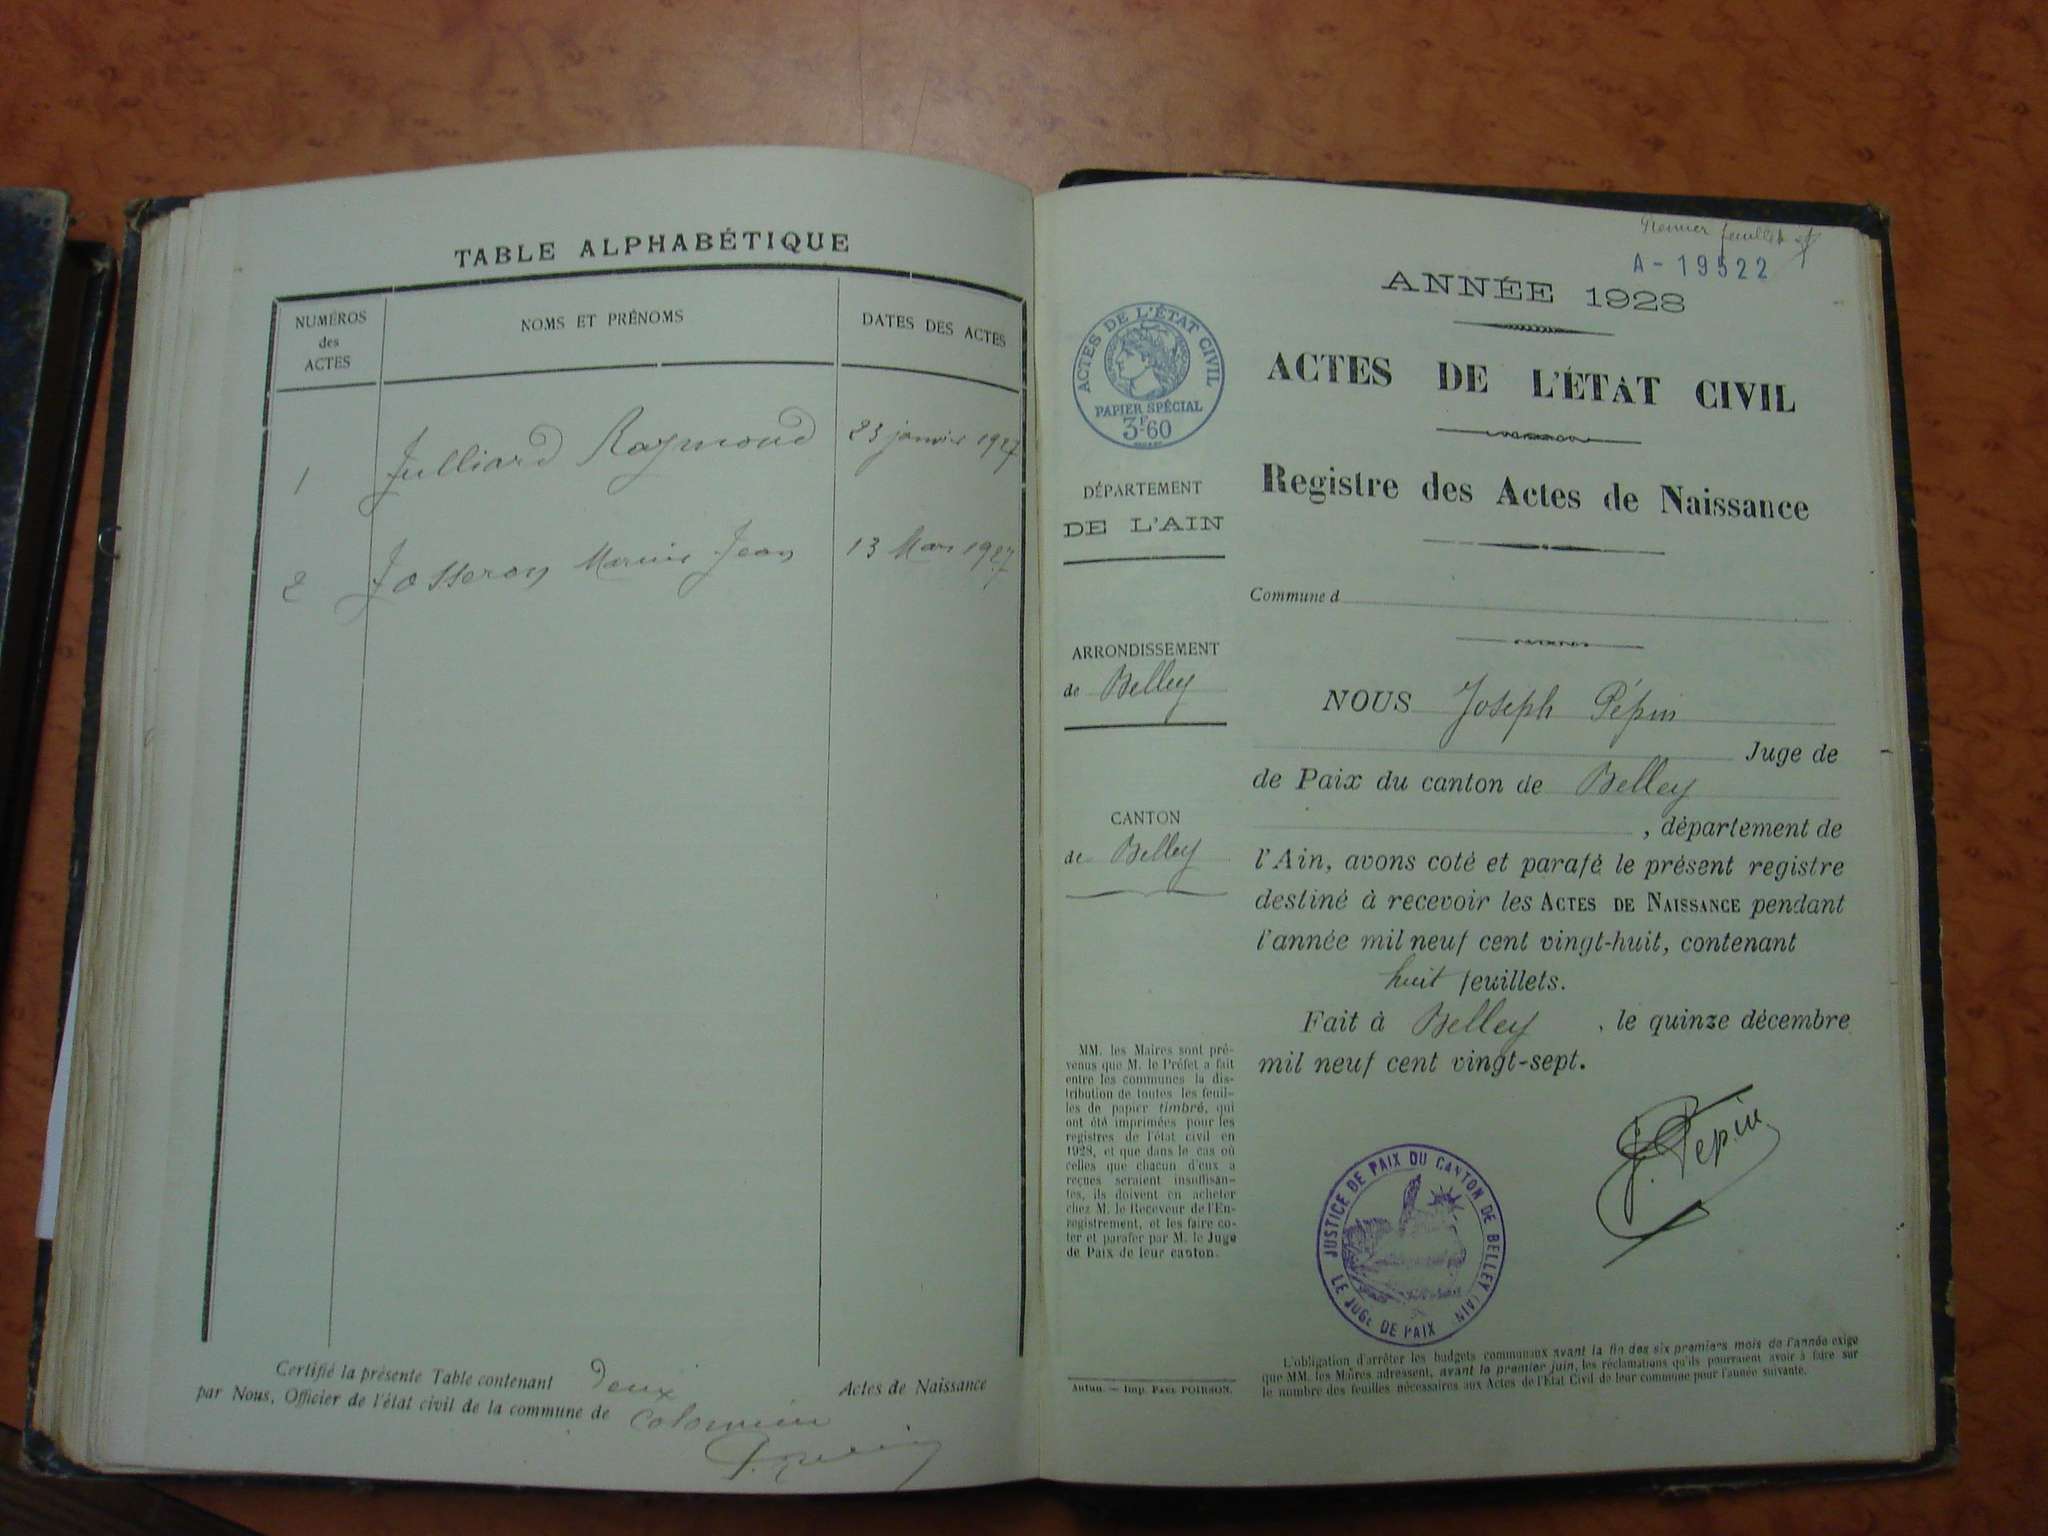 TABLE ALPHABÉTIQUE
NUMÉROS
des
ACTES
NOMS ET PRÉNOMS
DATES DES ACTES
1 Julliard Raymond 23 janvier 1927
2 Josseron Marius Jean 13 Mars 1927
Certifié la présente Table contenant deux Actes de Naissance
par Nous, Officier de l'état civil de la commune de Colomieu
Premier feuillet
A-19522
ANNÉE 1928
ACTES DE L'ÉTAT CIVIL
PAPIER SPÉCIAL
3F60
ACTES DE L'ÉTAT CIVIL
Registre des Actes de Naissance
DÉPARTEMENT
DE L'AIN
Commune d
ARRONDISSEMENT
de Belley
CANTON
de Belley
NOUS Joseph Pépin
Juge de
de Paix du canton de Belley
, département de
l'Ain, avons coté et parafé le présent registre
destiné à recevoir les ACTES DE NAISSANCE pendant
l'année mil neuf cent vingt-huit, contenant
huit feuillets.
Fait à Belley, le quinze décembre
mil neuf cent vingt-sept.
J. Pépin
JUSTICE DE PAIX DU CANTON DE BELLEY (AIN)
LE JUGE DE PAIX
MM. les Maires sont pré-
venus que M. le Préfet a fait
entre les communes la dis-
tribution de toutes les feuil-
les de papier timbré, qui
ont été imprimées pour les
registres de l'état civil en
1928, et que dans le cas où
celles que chacun d'eux a
reçues seraient insuffisan-
tes, ils doivent en acheter
chez M. le Receveur de l'En-
registrement, et les faire co-
ter et parafer par M. le Juge
de Paix de leur canton.
Autun. — Imp. PAUL POIRSON.
L'obligation d'arrêter les budgets communaux avant la fin des six premiers mois de l'année exige
que MM. les Maires adressent, avant le premier juin, les réclamations qu'ils pourraient avoir à faire sur
le nombre des feuilles nécessaires aux Actes de l'Etat Civil de leur commune pour l'année suivante.